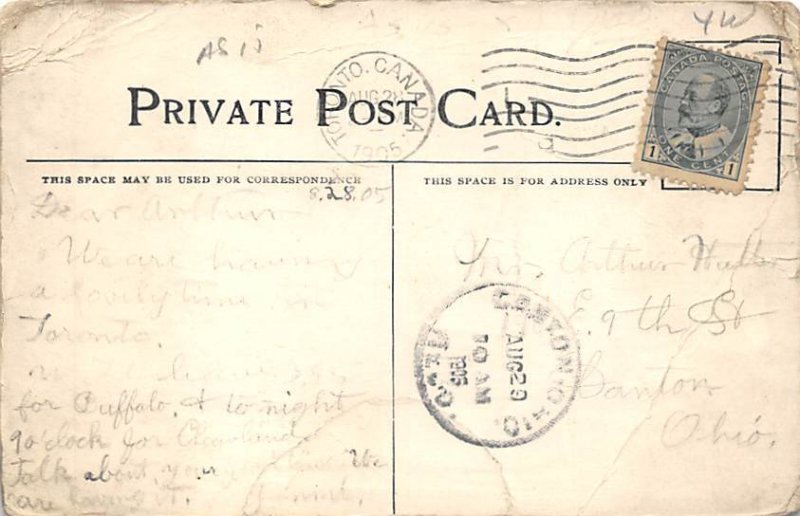 AS IS
YW
TORONTO. CANADA.
AUG 28
1905
PRIVATE POST CARD.
CANADA POSTAGE
1 ONE CENT 1
THIS SPACE MAY BE USED FOR CORRESPONDENCE
THIS SPACE IS FOR ADDRESS ONLY
8.28.05
Dear Arthur
We are having
a lovely time in
Toronto.
for Buffalo, & to night
9 o'clock for Cleveland.
Talk about your We
are having it.
Mr. Arthur
E. 9th St
Canton
Ohio.
CANTON, OHIO.
AUG 29
10 AM
1905
REC'D.